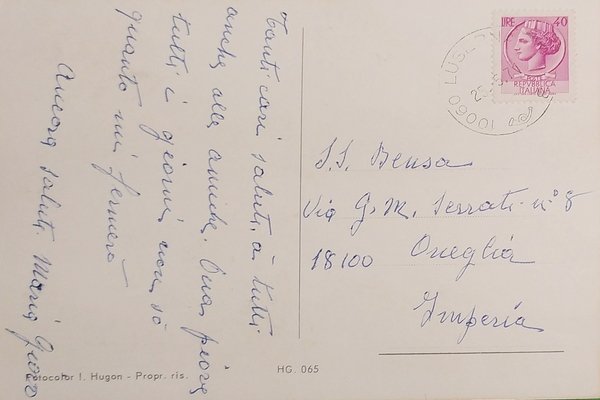 Tanti cari saluti a tutti
anche alle amiche. Qua piove
tutti i giorni, non so
quanto mi fermerò
Ancora saluti Maria
LIRE 40
REPVBBLICA
ITALIANA
10060 LUSERNA
S.S. Bensa
Via G. M. Serrati n° 8
18100 Oneglia
Imperia
Fotocolor I. Hugon - Propr. ris.
HG. 065